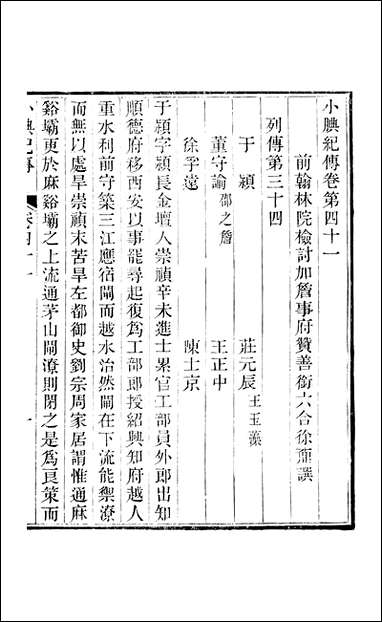 小腆紀傳卷第四十一
前翰林院檢討加詹事府贊善銜六合徐鼒譔
列傳第三十四
于潁 莊元辰 王玉藻
董守諭 鄞之詹 王正中
徐孚遠 陳士京
于潁字潁長金壇人崇禎辛未進士累官工部員外郎出知
順德府移西安以事罷尋起復爲工部郎授紹興知府越人
重水利前守築三江應宿閘而越水治然閘在下流能禦潦
而無以處旱崇禎末苦旱左都御史劉宗周家居謂惟通麻
谿壩更於麻谿壩之上流通茅山閘潦則閉之是爲良策而
小腆紀傳 卷四十一 一